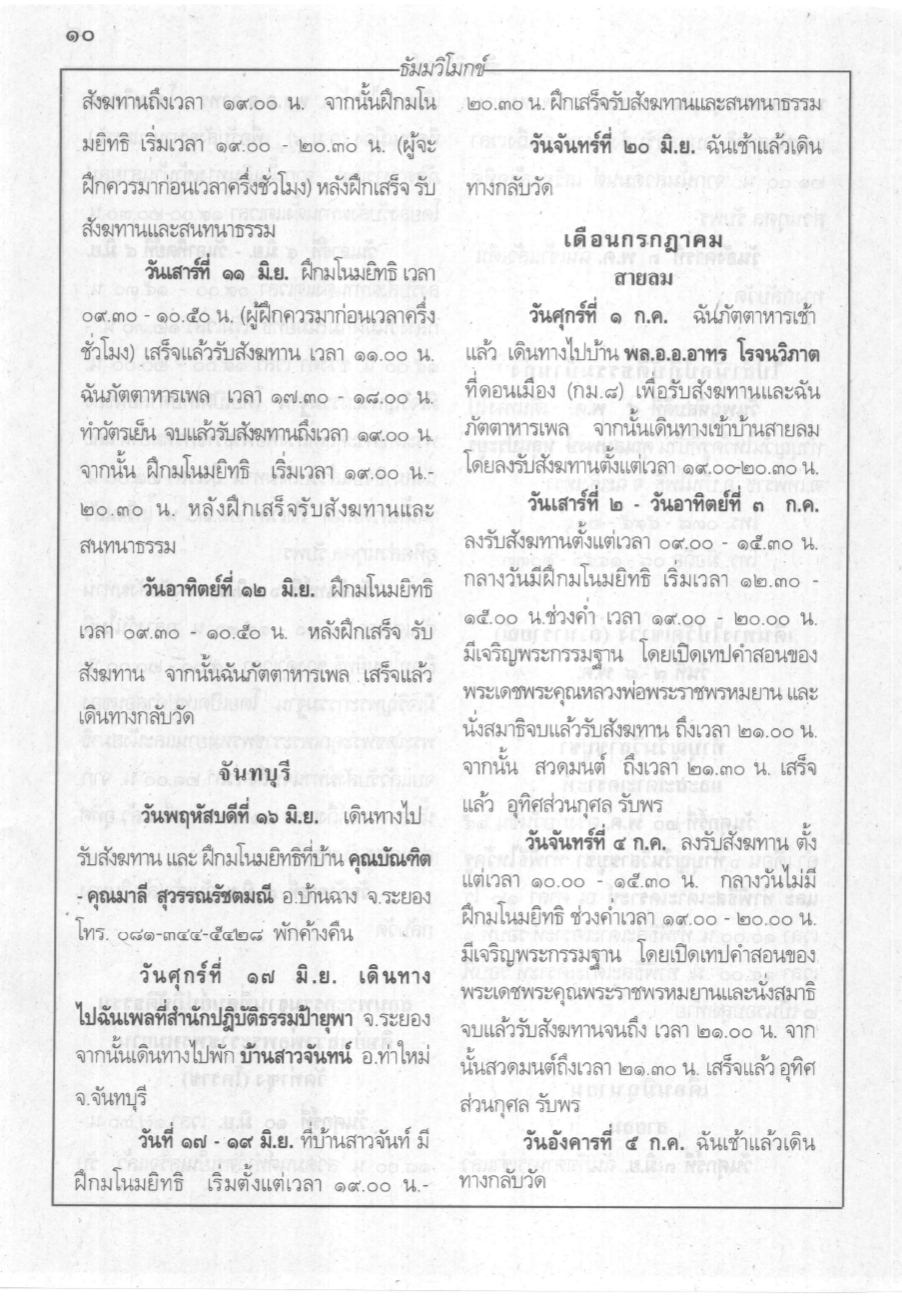 ๑๐
ธัมมวิโมกข์
สังฆทานถึงเวลา ๑๙.๐๐ น. จากนั้นฝึกมโน
มยิทธิ เริ่มเวลา ๑๙.๐๐ - ๒๐.๓๐ น. (ผู้จะ
ฝึกควรมาก่อนเวลาครึ่งชั่วโมง) หลังฝึกเสร็จ รับ
สังฆทานและสนทนาธรรม
วันเสาร์ที่ ๑๑ มิ.ย. ฝึกมโนมยิทธิ เวลา
๐๙.๓๐ - ๑๐.๕๐ น. (ผู้ฝึกควรมาก่อนเวลาครึ่ง
ชั่วโมง) เสร็จแล้วรับสังฆทาน เวลา ๑๑.๐๐ น.
ฉันภัตตาหารเพล เวลา ๑๗.๓๐ - ๑๘.๐๐ น.
ทำวัตรเย็น จบแล้วรับสังฆทานถึงเวลา ๑๙.๐๐ น.
จากนั้น ฝึกมโนมยิทธิ เริ่มเวลา ๑๙.๐๐ น.-
๒๐.๓๐ น. หลังฝึกเสร็จรับสังฆทานและ
สนทนาธรรม
วันอาทิตย์ที่ ๑๒ มิ.ย. ฝึกมโนมยิทธิ
เวลา ๐๙.๓๐ - ๑๐.๕๐ น. หลังฝึกเสร็จ รับ
สังฆทาน จากนั้นฉันภัตตาหารเพล เสร็จแล้ว
เดินทางกลับวัด
จันทบุรี
วันพฤหัสบดีที่ ๑๖ มิ.ย. เดินทางไป
รับสังฆทาน และ ฝึกมโนมยิทธิที่บ้าน คุณบัณฑิต
- คุณมาลี สุวรรณรัชตมณี อ.บ้านฉาง จ.ระยอง
โทร. ๐๘๑-๓๔๔-๕๔๒๘ พักค้างคืน
วันศุกร์ที่ ๑๗ มิ.ย. เดินทาง
ไปฉันเพลที่สำนักปฏิบัติธรรมป้ายุพา จ.ระยอง
จากนั้นเดินทางไปพัก บ้านสาวจันทน์ อ.ท่าใหม่
จ.จันทบุรี
วันที่ ๑๗ - ๑๙ มิ.ย. ที่บ้านสาวจันท์ มี
ฝึกมโนมยิทธิ เริ่มตั้งแต่เวลา ๑๙.๐๐ น.-
๒๐.๓๐ น. ฝึกเสร็จรับสังฆทานและสนทนาธรรม
วันจันทร์ที่ ๒๐ มิ.ย. ฉันเช้าแล้วเดิน
ทางกลับวัด
เดือนกรกฎาคม
สายลม
วันศุกร์ที่ ๑ ก.ค. ฉันภัตตาหารเช้า
แล้ว เดินทางไปบ้าน พล.อ.อ.อาทร โรจนวิภาต
ที่ดอนเมือง (กม.๘) เพื่อรับสังฆทานและฉัน
ภัตตาหารเพล จากนั้นเดินทางเข้าบ้านสายลม
โดยลงรับสังฆทานตั้งแต่เวลา ๑๙.๐๐-๒๐.๓๐ น.
วันเสาร์ที่ ๒ - วันอาทิตย์ที่ ๓ ก.ค.
ลงรับสังฆทานตั้งแต่เวลา ๐๙.๐๐ - ๑๕.๓๐ น.
กลางวันมีฝึกมโนมยิทธิ เริ่มเวลา ๑๒.๓๐ -
๑๕.๐๐ น.ช่วงค่ำ เวลา ๑๙.๐๐ - ๒๐.๐๐ น.
มีเจริญพระกรรมฐาน โดยเปิดเทปคำสอนของ
พระเดชพระคุณหลวงพ่อพระราชพรหมยาน และ
นั่งสมาธิจบแล้วรับสังฆทาน ถึงเวลา ๒๑.๐๐ น.
จากนั้น สวดมนต์ ถึงเวลา ๒๑.๓๐ น. เสร็จ
แล้ว อุทิศส่วนกุศล รับพร
วันจันทร์ที่ ๔ ก.ค. ลงรับสังฆทาน ตั้ง
แต่เวลา ๑๐.๐๐ - ๑๕.๓๐ น. กลางวันไม่มี
ฝึกมโนมยิทธิ ช่วงค่ำเวลา ๑๙.๐๐ - ๒๐.๐๐ น.
มีเจริญพระกรรมฐาน โดยเปิดเทปคำสอนของ
พระเดชพระคุณพระราชพรหมยานและนั่งสมาธิ
จบแล้วรับสังฆทานจนถึง เวลา ๒๑.๐๐ น. จาก
นั้นสวดมนต์ถึงเวลา ๒๑.๓๐ น. เสร็จแล้ว อุทิศ
ส่วนกุศล รับพร
วันอังคารที่ ๕ ก.ค. ฉันเช้าแล้วเดิน
ทางกลับวัด